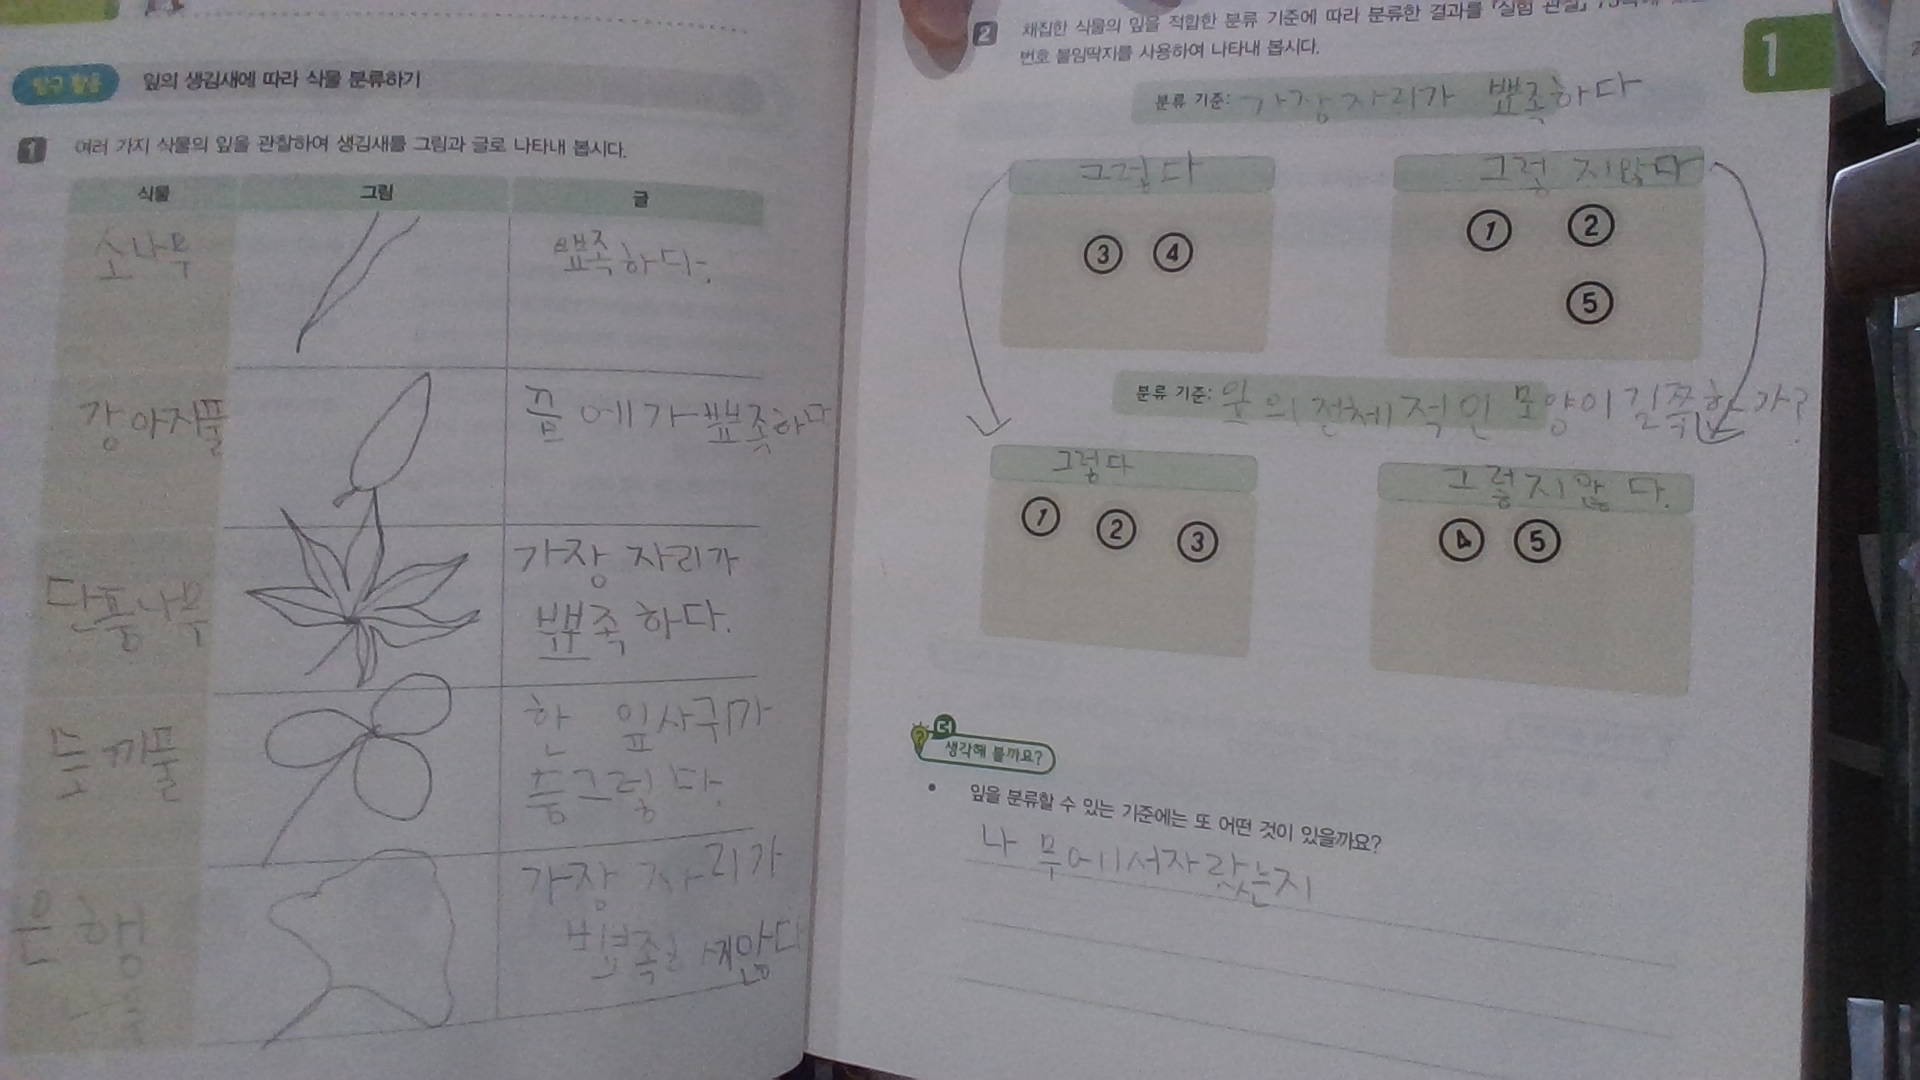 탐구 활동
잎의 생김새에 따라 식물 분류하기
1 여러 가지 식물의 잎을 관찰하여 생김새를 그림과 글로 나타내 봅시다.
식물 그림 글
소나무
뾰족하다.
강아지풀
끝에가 뾰족하다
단풍나무
가장 자리가
뾰족하다.
토끼풀
한 잎사귀가
둥그렇다.
은행
가장 자리가
2 채집한 식물의 잎을 적합한 분류 기준에 따라 분류한 결과를 『실험 관찰』
번호 붙임딱지를 사용하여 나타내 봅시다.
1
분류 기준: 가장자리가 뾰족하다
그렇다
그렇지않다
③ ④
① ②
⑤
분류 기준: 잎의 전체적인 모양이 길쭉한가?
그렇다
그렇지않다.
① ② ③
④ ⑤
더
생각해 볼까요?
• 잎을 분류할 수 있는 기준에는 또 어떤 것이 있을까요?
나무에서자랐는지